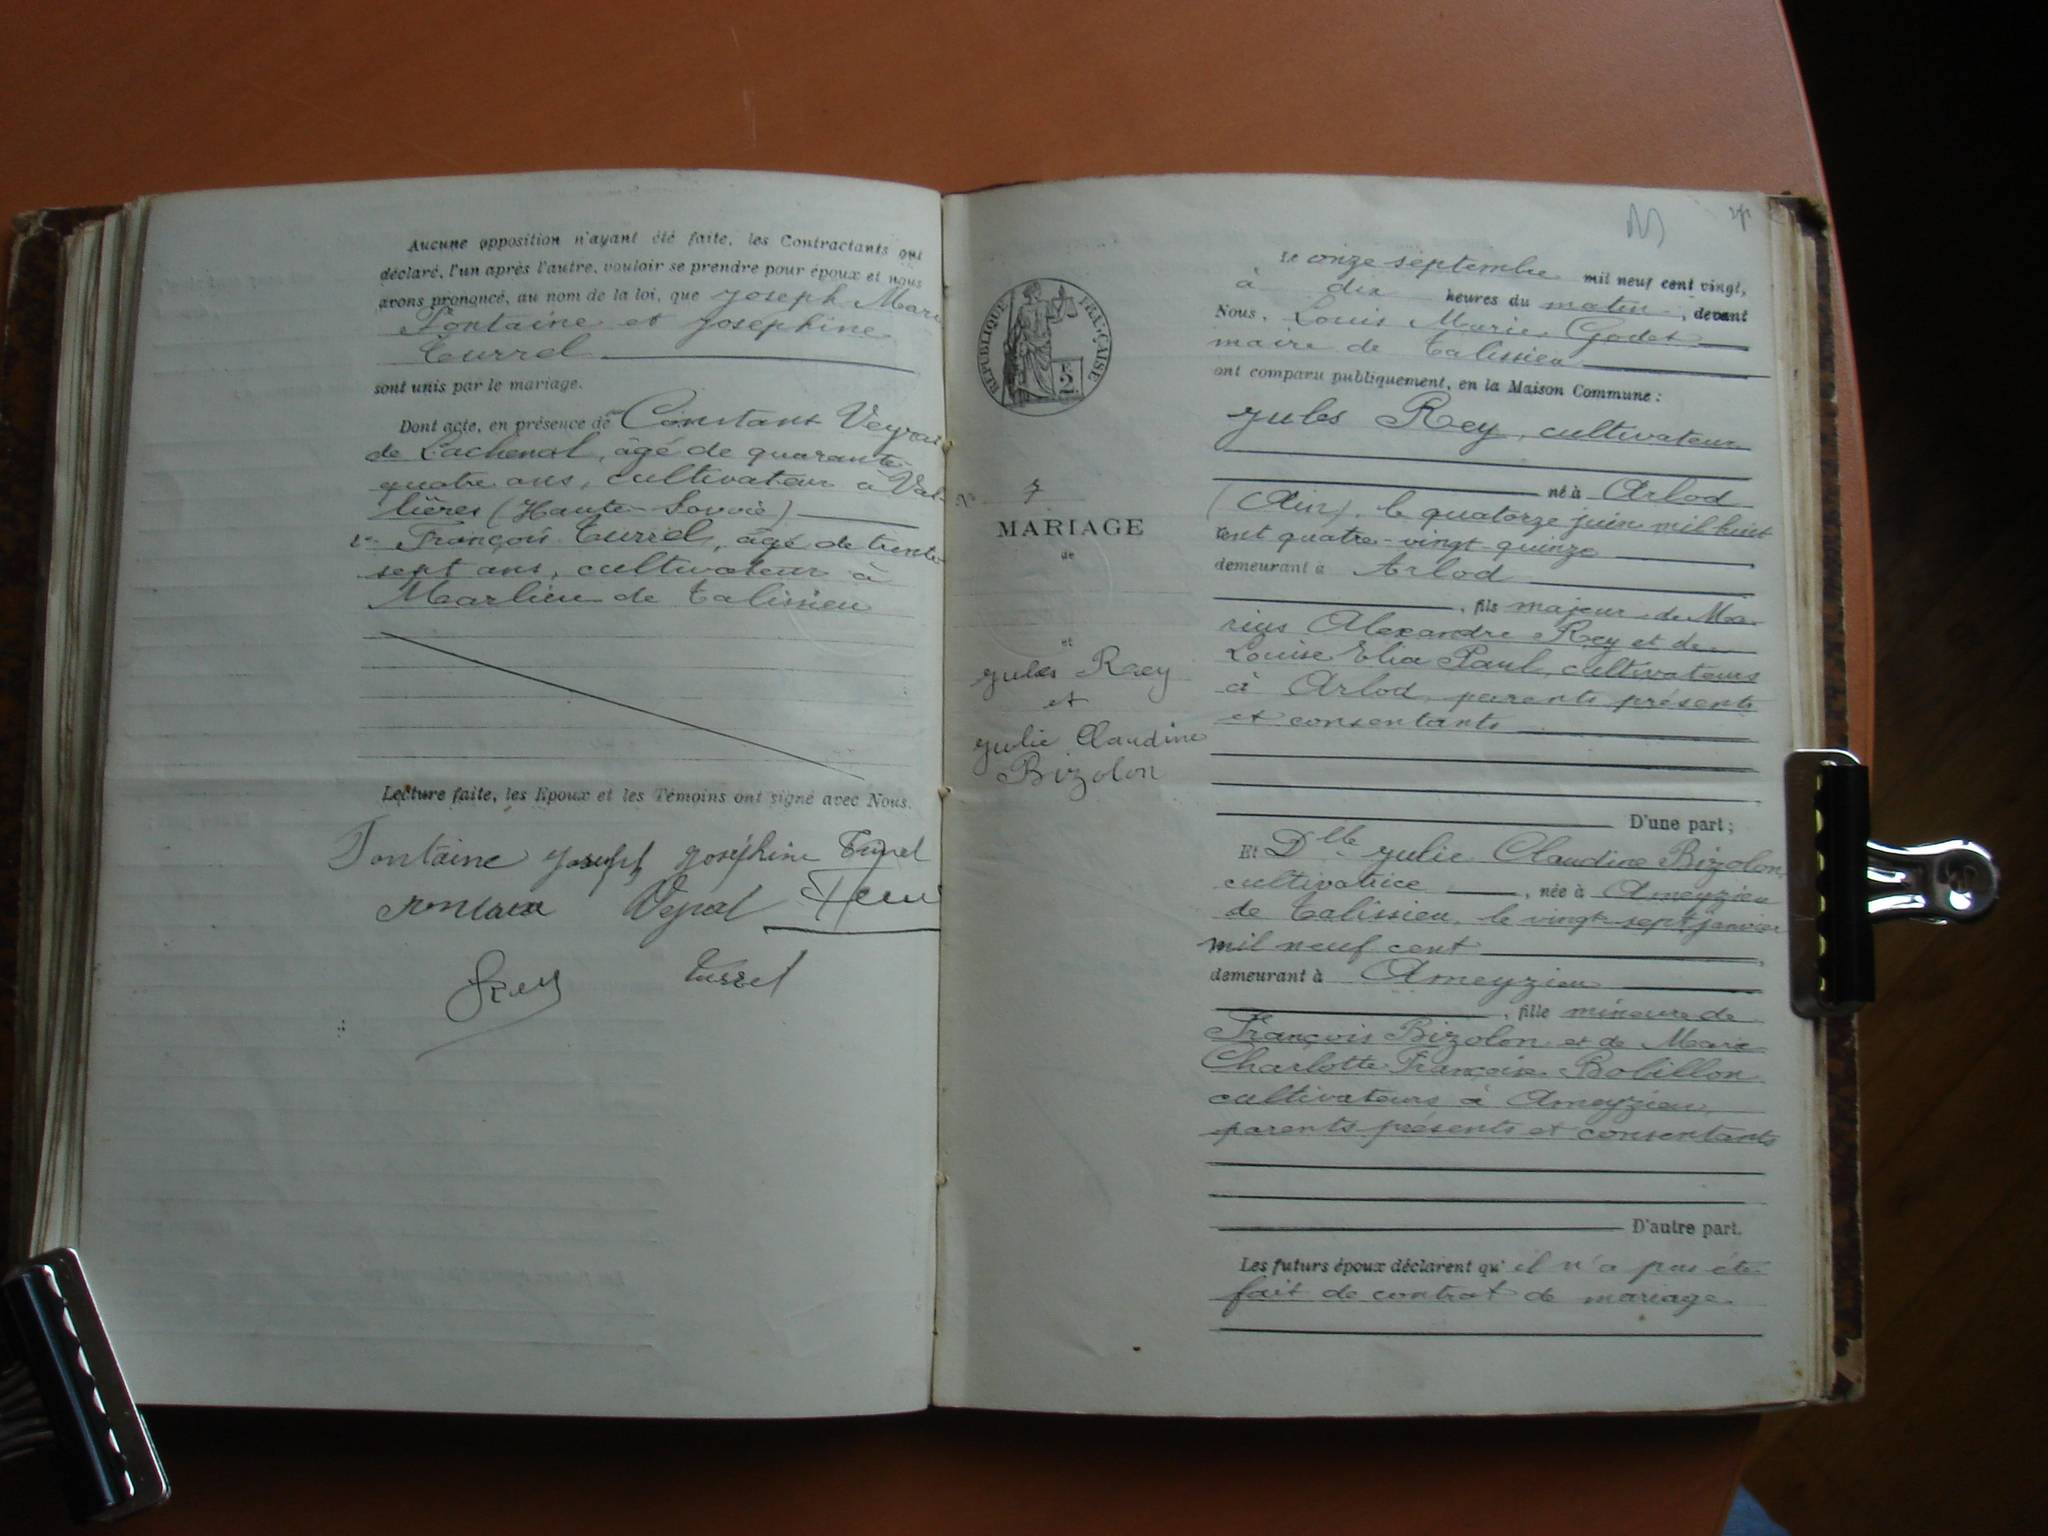 Aucune opposition n'ayant été faite, les Contractants ont
déclaré, l'un après l'autre, vouloir se prendre pour époux et nous
avons prononcé, au nom de la loi, que Joseph Marie
Fontaine et Josephine
Turrel
sont unis par le mariage.
Dont acte, en présence de Constant Veyrat
de Lachenal, âgé de quarante
quatre ans, cultivateur à Val-
lières (Haute-Savoie)
François Turrel, âgé de trente
sept ans, cultivateur à
Marlieu de Talissieu
Lecture faite, les Epoux et les Témoins ont signé avec Nous.
Fontaine Joseph Joséphine Turrel
Turrel
RÉPUBLIQUE FRANÇAISE
2
N° 7
MARIAGE
de
et
Jules Rey
et
Julie Claudine
Bizolon
Le onze septembre mil neuf cent vingt,
à dix heures du matin, devant
Nous, Louis Marie Godet
maire de Talissieu
ont comparu publiquement, en la Maison Commune :
Jules Rey, cultivateur
né à Arlod
(Ain), le quatorze juin mil huit
cent quatre-vingt quinze
demeurant à Arlod
, fils majeur de Ma-
rius Alexandre Rey et de
Louise Elia Paul, cultivateurs
à Arlod, parents présents
et consentants
D'une part ;
Et Dlle Julie Claudine Bizolon,
cultivatrice, née à Ameyzieu
de Talissieu, le vingt-sept janvier
mil neuf cent
demeurant à Ameyzieu
, fille mineure de
François Bizolon et de Marie
Charlotte Françoise Bobillon
cultivateurs à Ameyzieu,
parents présents et consentants
D'autre part.
Les futurs époux déclarent qu'il n'a pas été
fait de contrat de mariage